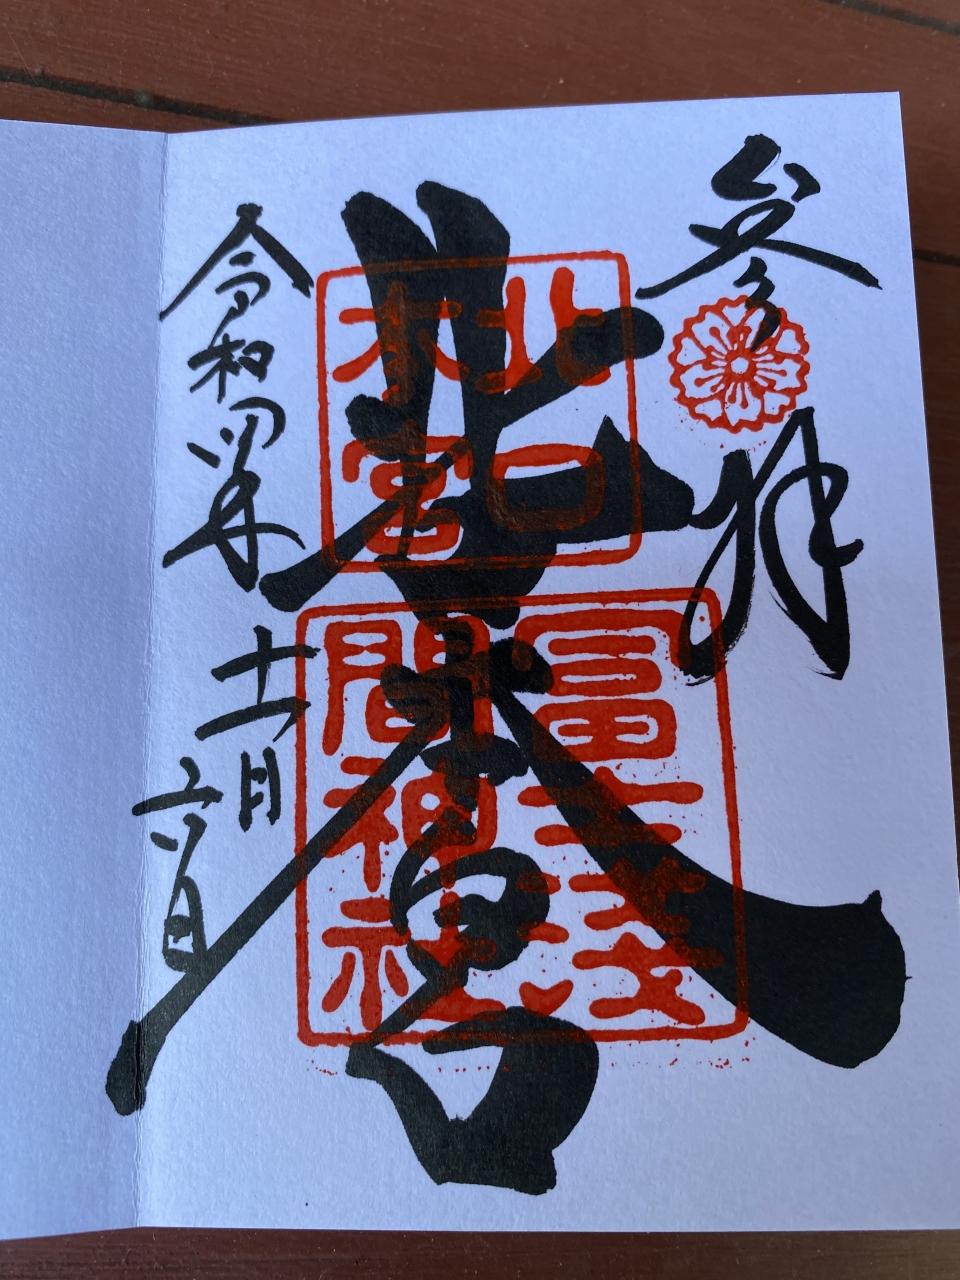 参拝
北口本宮
令和四年
十一月
六日
北口
本宮
冨士浅
間神社